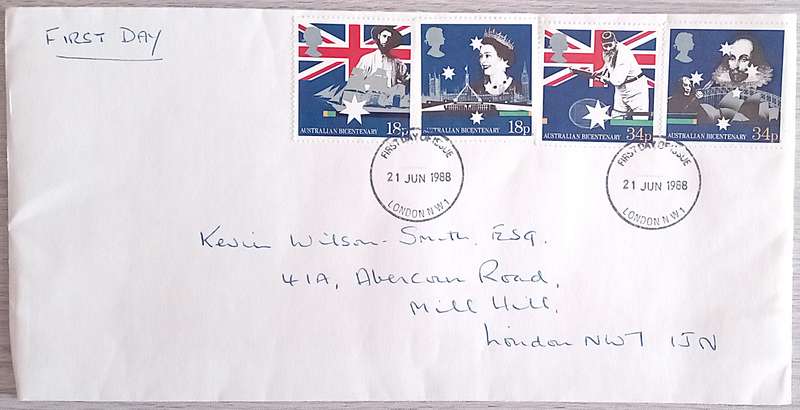 FIRST DAY
AUSTRALIAN BICENTENARY 18p
AUSTRALIAN BICENTENARY 18p
AUSTRALIAN BICENTENARY 34p
AUSTRALIAN BICENTENARY 34p
FIRST DAY OF ISSUE
21 JUN 1988
LONDON NW1
FIRST DAY OF ISSUE
21 JUN 1988
LONDON NW1
Kevin Wilson-Smith, ESQ.
41A, Abercorn Road,
Mill Hill,
London NW7 1JN